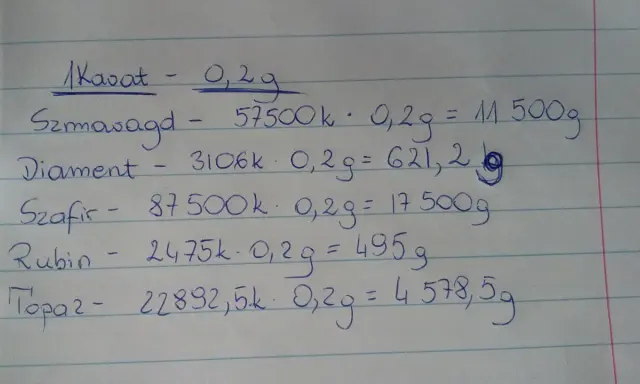 1 Karat - 0,2g
Szmaragd - 57500k · 0,2g = 11 500g
Diament - 3106k · 0,2g = 621,2 g
Szafir - 87 500k · 0,2g = 17 500g
Rubin - 2475k · 0,2g = 495g
Topaz - 22892,5k · 0,2g = 4 578,5g